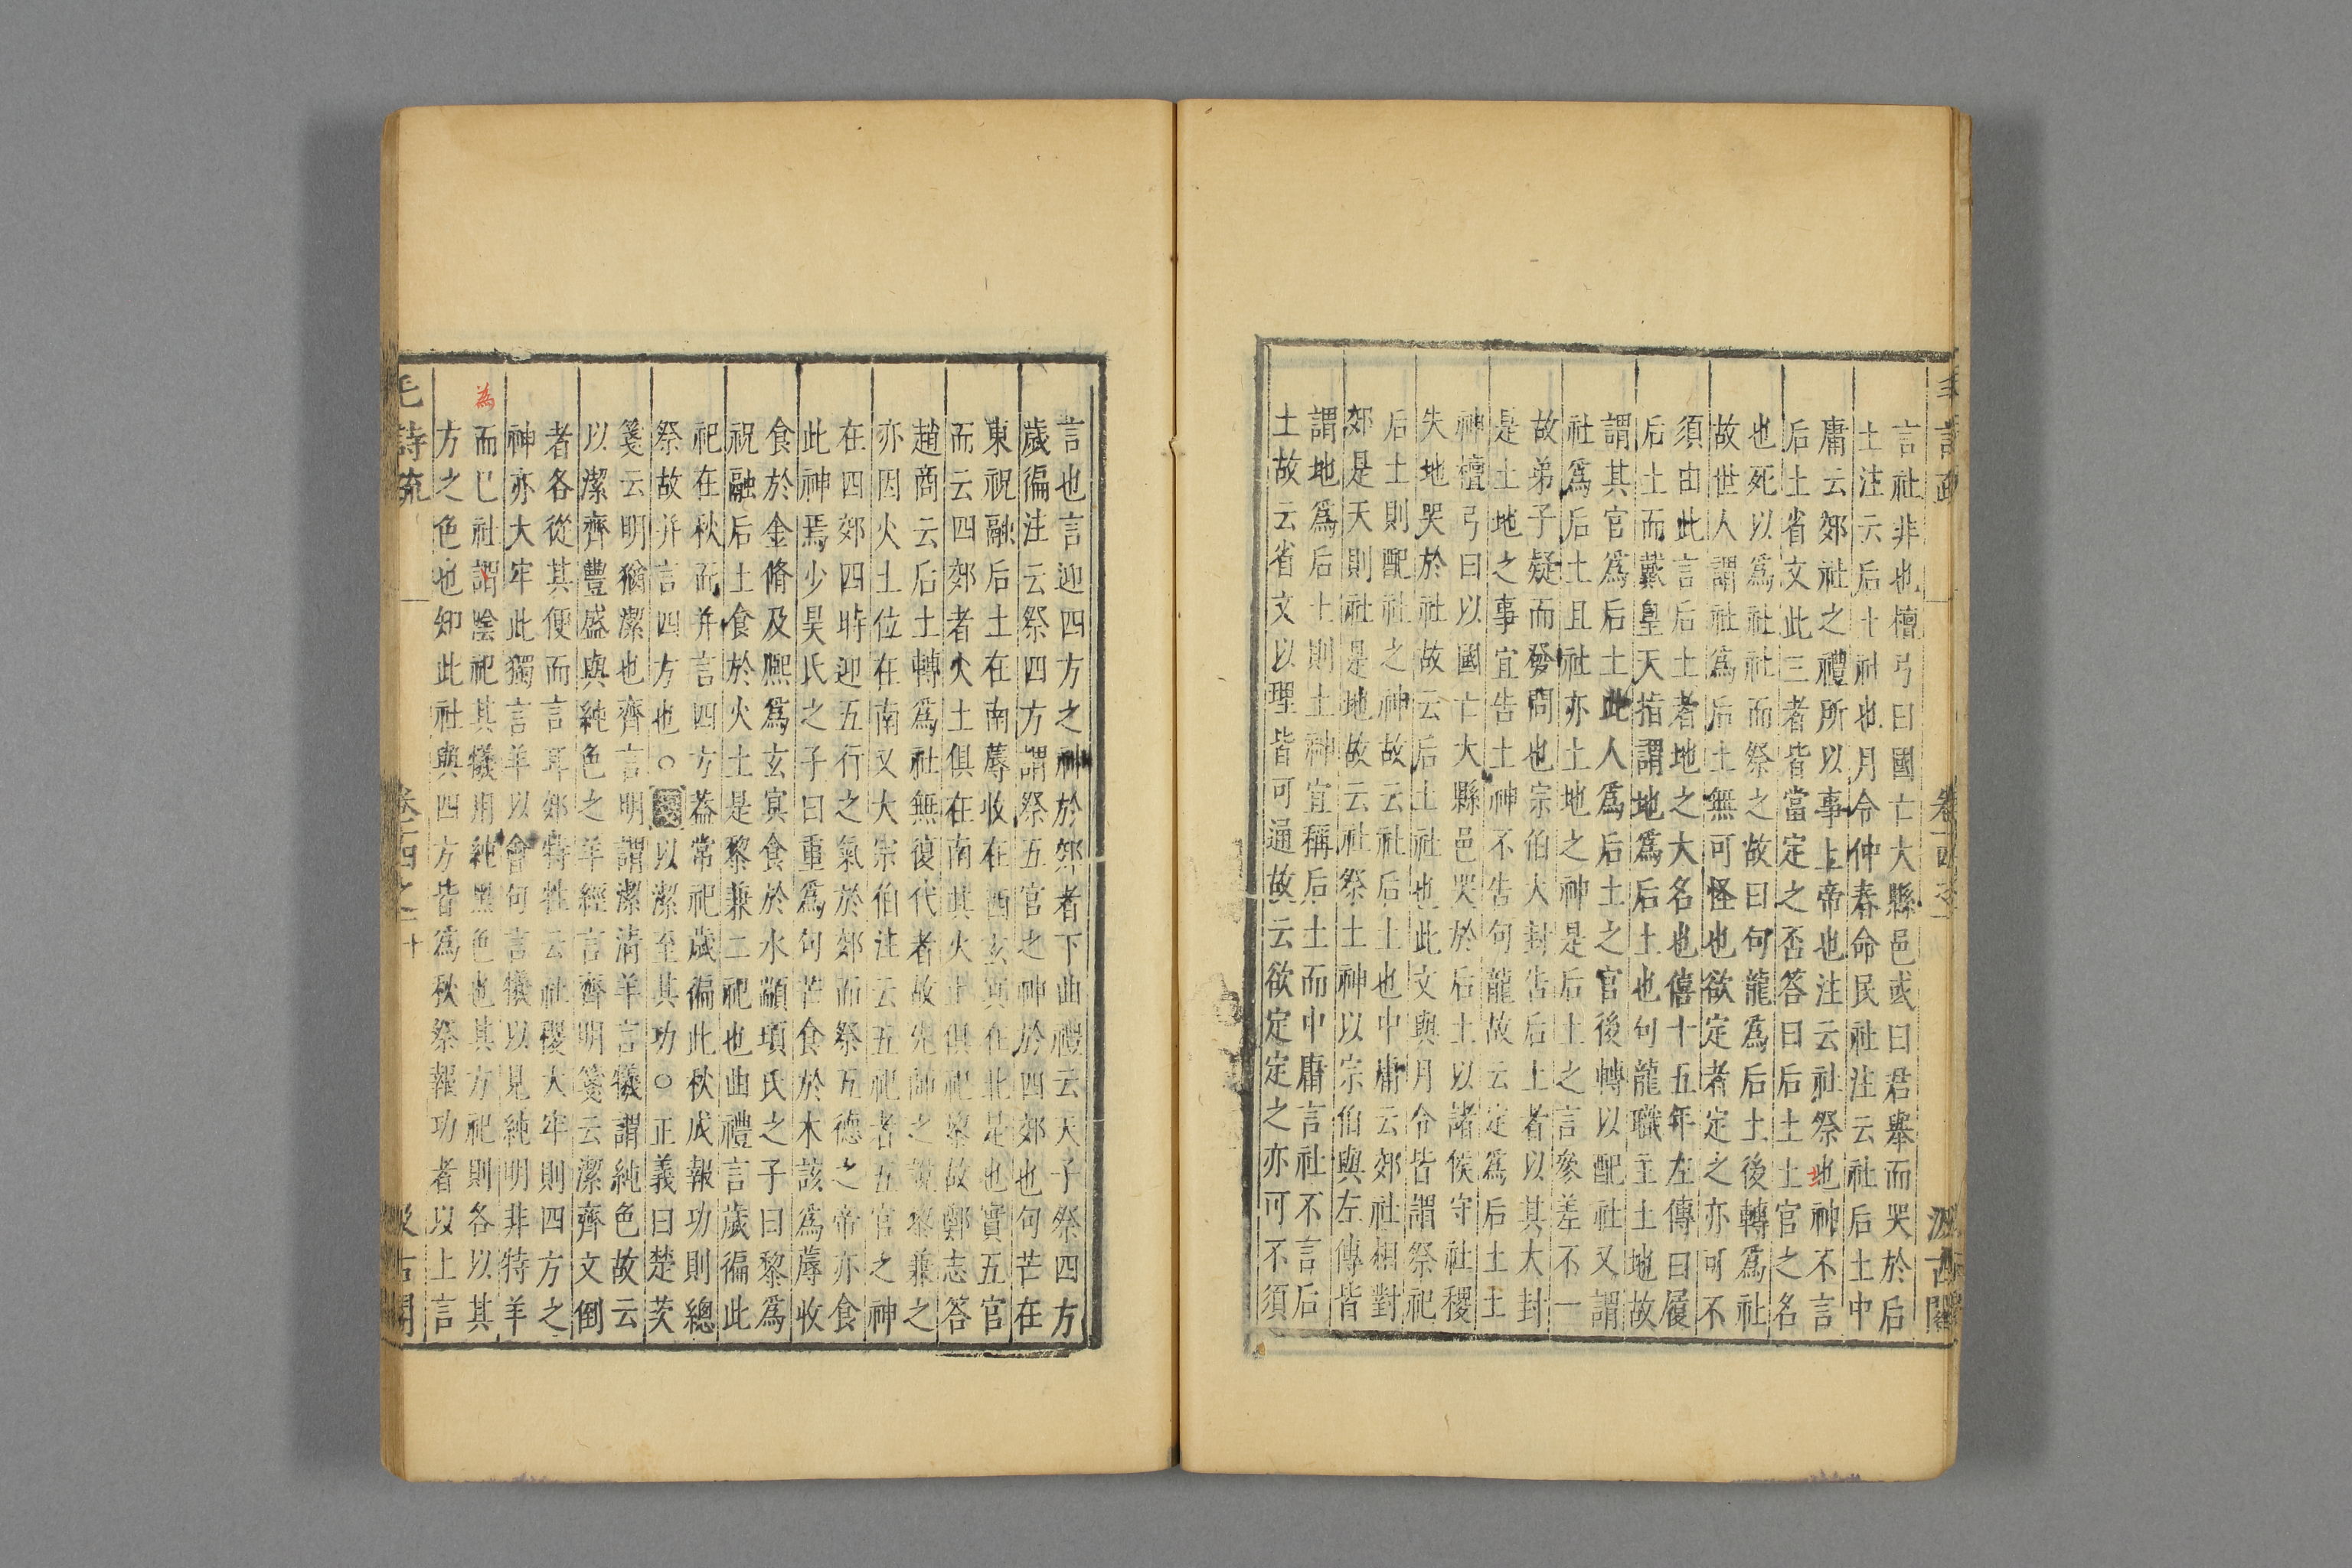 言社非也檀弓曰國亡大縣邑或曰君舉而哭於后
土注云后土社也月令仲春命民社注云社后土中
庸云郊社之禮所以事上帝也注云社祭地神不言
后土省文此三者皆當定之否答曰后土土官之名
也死以為社社而祭之故曰句龍為后土後轉為社
故世人謂社為后土無可怪也欲定者定之亦可不
須由此言后土者地之大名也僖十五年左傳曰履
后土而戴皇天指謂地為后土也句龍職主土地故
謂其官為后土此人為后土之官後轉以配社又謂
社為后土且社亦土地之神是后土之言參差不一
故弟子疑而發問也宗伯大封告后土者以其大封
是土地之事宜告土神不告句龍故云定為后土土
神檀弓曰以國亡大縣邑哭於后土以諸侯守社稷
失地哭於社故云后土社也此文與月令皆謂祭祀
后土則配社之神故云社后土也中庸云郊社相對
郊是天則社是地故云社祭土神以宗伯與左傳皆
謂地為后土則土神宜稱后土而中庸言社不言后
土故云省文以理皆可通故云欲定定之亦可不須
言也言迎四方之神於郊者下曲禮云天子祭四方
歲徧注云祭四方謂祭五官之神於四郊也句芒在
東祝融后土在南蓐收在西玄冥在北是也實五官
而云四郊者火土俱在南其火土俱祀黎故鄭志答
趙商云后土轉為社無復代者故先師之說黎兼之
亦因火土位在南又大宗伯注云五祀者五官之神
在四郊四時迎五行之氣於郊而祭五德之帝亦食
此神焉少昊氏之子曰重為句芒食於木該為蓐收
食於金脩及熙為玄冥食於水顓頊氏之子曰黎為
祝融后土食於火土是黎兼二祀也曲禮言歲徧此
祀在秋而并言四方葢常祀歲徧此秋成報功則總
祭故并言四方也○箋以潔至其功○正義曰楚茨
箋云明猶潔也齊言明謂潔清羊言犧謂純色故云
以潔齊豐盛與純色之羊經言齊明箋云潔齊文倒
者各從其便而言耳郊特牲云社稷大牢則四方之
神亦大牢此獨言羊以會句言犧以見純明非特羊
而已社謂陰祀其犧用純黑色也其方祀則各以其
方之色也知此社與四方皆為秋祭報功者以上言
為
毛詩疏 卷十四之一 十 汲古閣